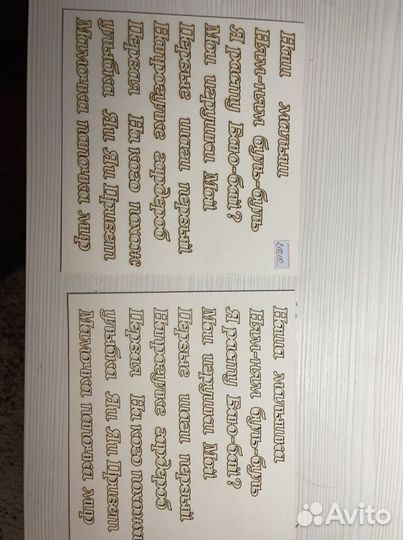 Наш малыш
Ням-ням буль-буль
Я расту Баю-бай?
Мои игрушки Мой
Первые шаги первый
На прогулке гардероб
Первая На кого похож
улыбка Привет
Мамочка папочка мир
Наша малышка
Ням-ням буль-буль
Я расту Баю-бай?
Мои игрушки Мой
Первые шаги первый
На прогулке гардероб
Первая На кого похожа
улыбка Привет
Мамочка папочка мир
Avito